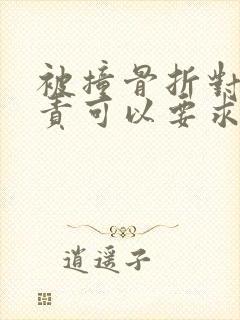 被撞骨折對
責可以要求
逍遥子